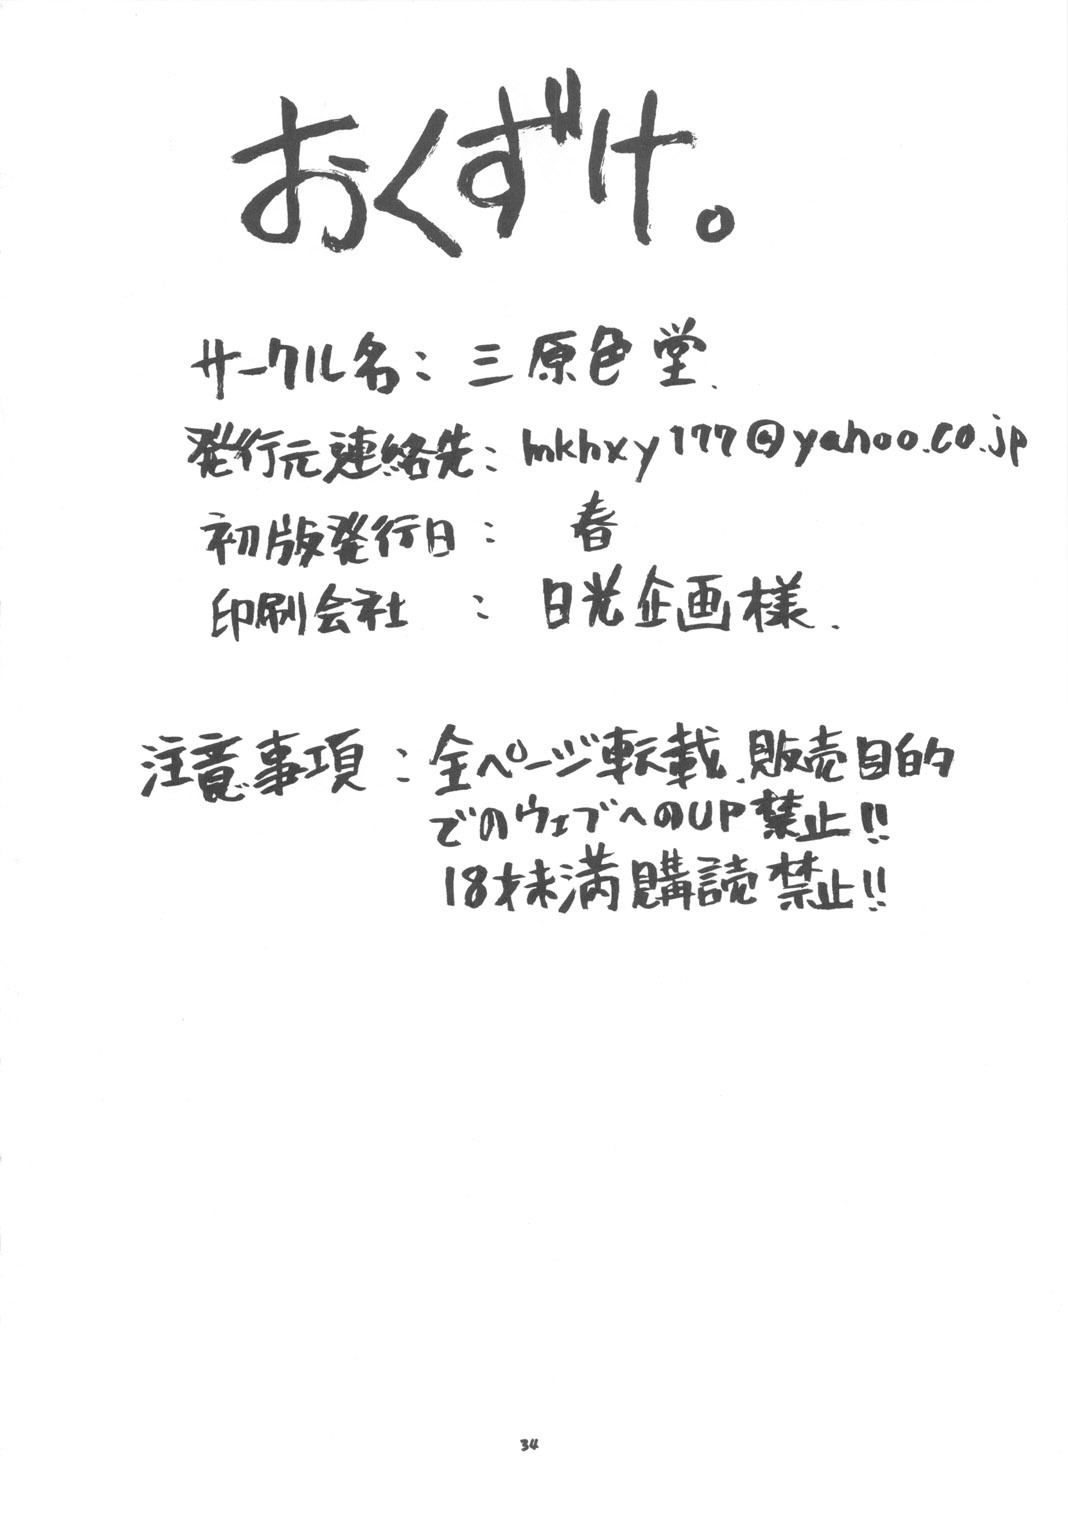 おくずけ。
サークル名：三原色堂.
発行元連絡先：mkhxy177@yahoo.co.jp
初版発行日：春
印刷会社：日光企画様.
注意事項：全ページ転載、販売目的
でのウェブへのUP禁止!!
18才未満購読禁止!!
34